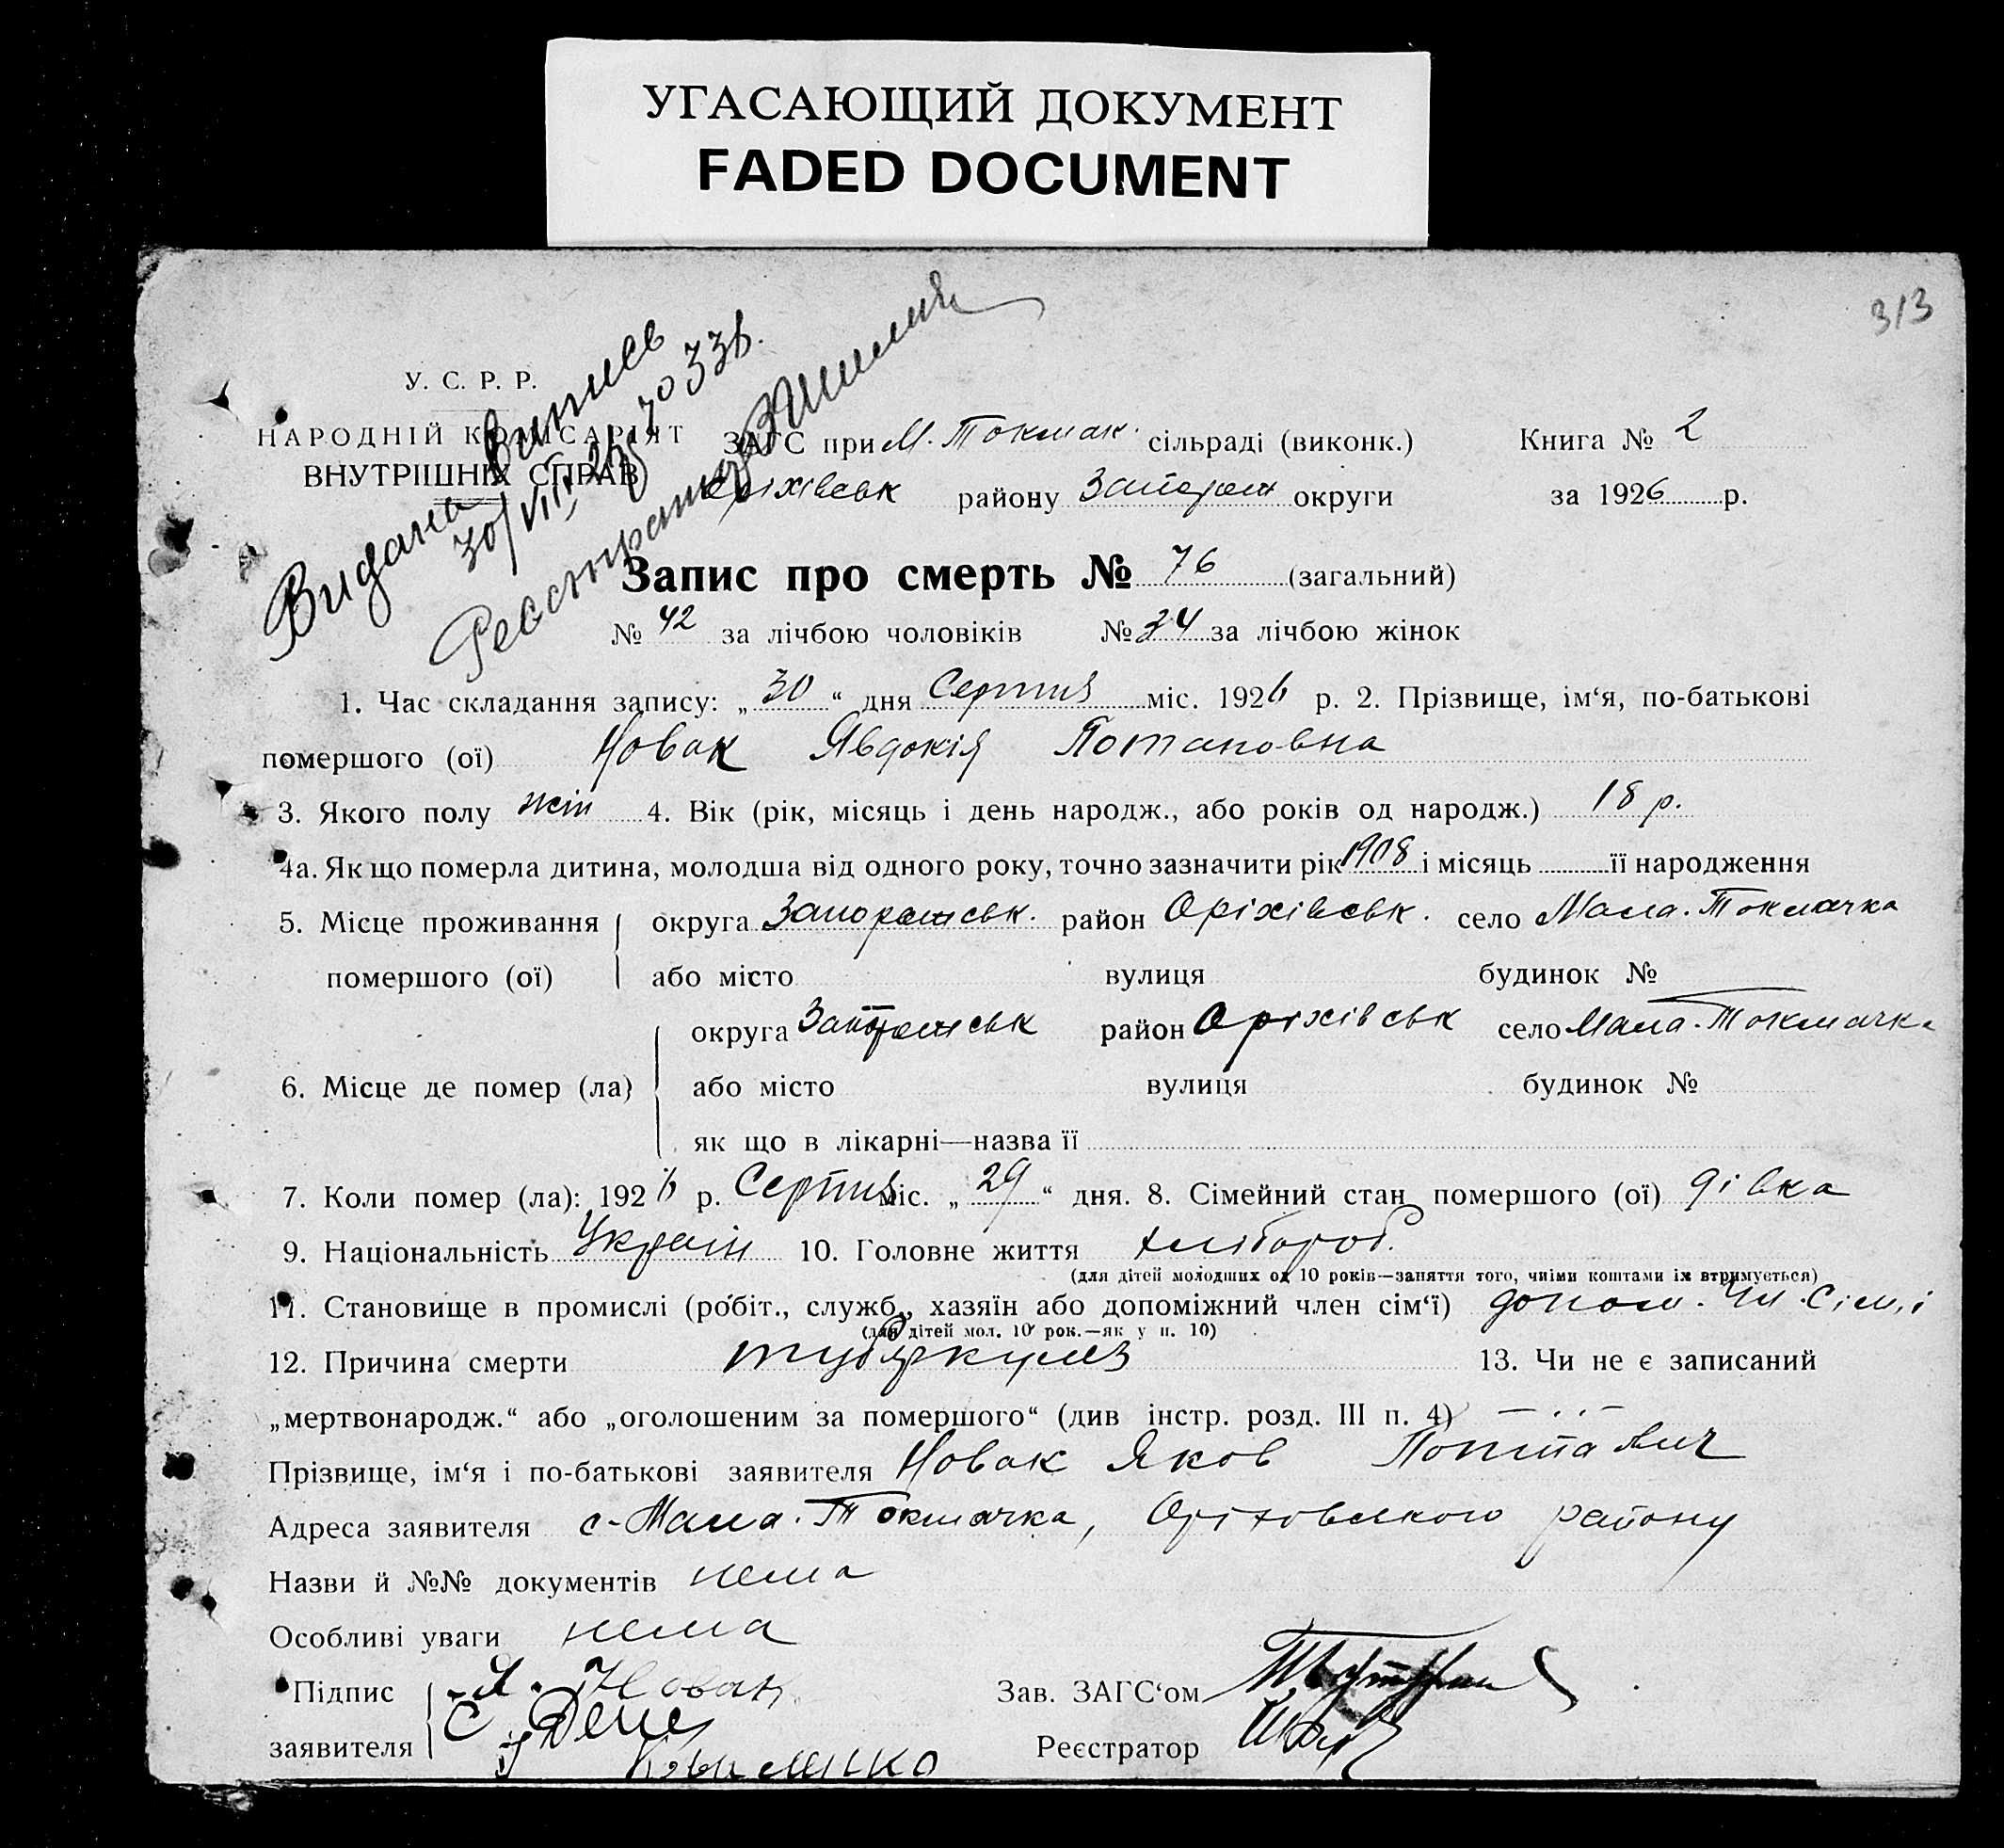 УГАСАЮЩИЙ ДОКУМЕНТ
FADED DOCUMENT
313
Видана Випись
30/VIII 26 р. 70336.
Реєстратор
У. С. Р. Р.
НАРОДНІЙ КОМІСАРІЯТ
ВНУТРІШНІХ СПРАВ
ЗАГС при М. Токмак. сільраді (виконк.) Книга № 2
Оріхівськ району Запорож округи за 1926 р.
Запис про смерть № 76 (загальний)
№ 42 за лічбою чоловіків № 34 за лічбою жінок
1. Час складання запису: „ 30 “ дня Серпня міс. 1926 р. 2. Прізвище, ім‘я, по-батькові
помершого (ої) Новак Явдокія Потаповна
3. Якого полу жін 4. Вік (рік, місяць і день народж., або років од народж.) 18 р.
4а. Як що померла дитина, молодша від одного року, точно зазначити рік 1908 і місяць її народження
5. Місце проживання помершого (ої) округа Запорожськ. район Оріхівськ. село Мала. Токмачка
або місто вулиця будинок №
6. Місце де помер (ла) округа Запорожськ район Оріхівськ село Мала. Токмачка
або місто вулиця будинок №
як що в лікарні—назва її
7. Коли помер (ла): 1926 р. Серпня міс. „ 29 “ дня. 8. Сімейний стан помершого (ої) дівка
9. Національність Україн 10. Головне життя хлібороб.
(для дітей молодших од 10 років—заняття того, чиїми коштами їх втримується)
11. Становище в промислі (робіт., служб., хазяїн або допоміжний член сім‘ї) допом. Чл. Сім,і
(для дітей мол. 10 рок.—як у п. 10)
12. Причина смерти туберкульз 13. Чи не є записаний
„мертвонародж.“ або „оголошеним за помершого“ (див інстр. розд. III п. 4)
Прізвище, ім‘я і по-батькові заявителя Новак Яков
Адреса заявителя с-Мала. Токмачка, Оріховського району
Назви й №№ документів нема
Особливі уваги нема
Підпис заявителя Я. Новак
Зав. ЗАГС‘ом
Реєстратор